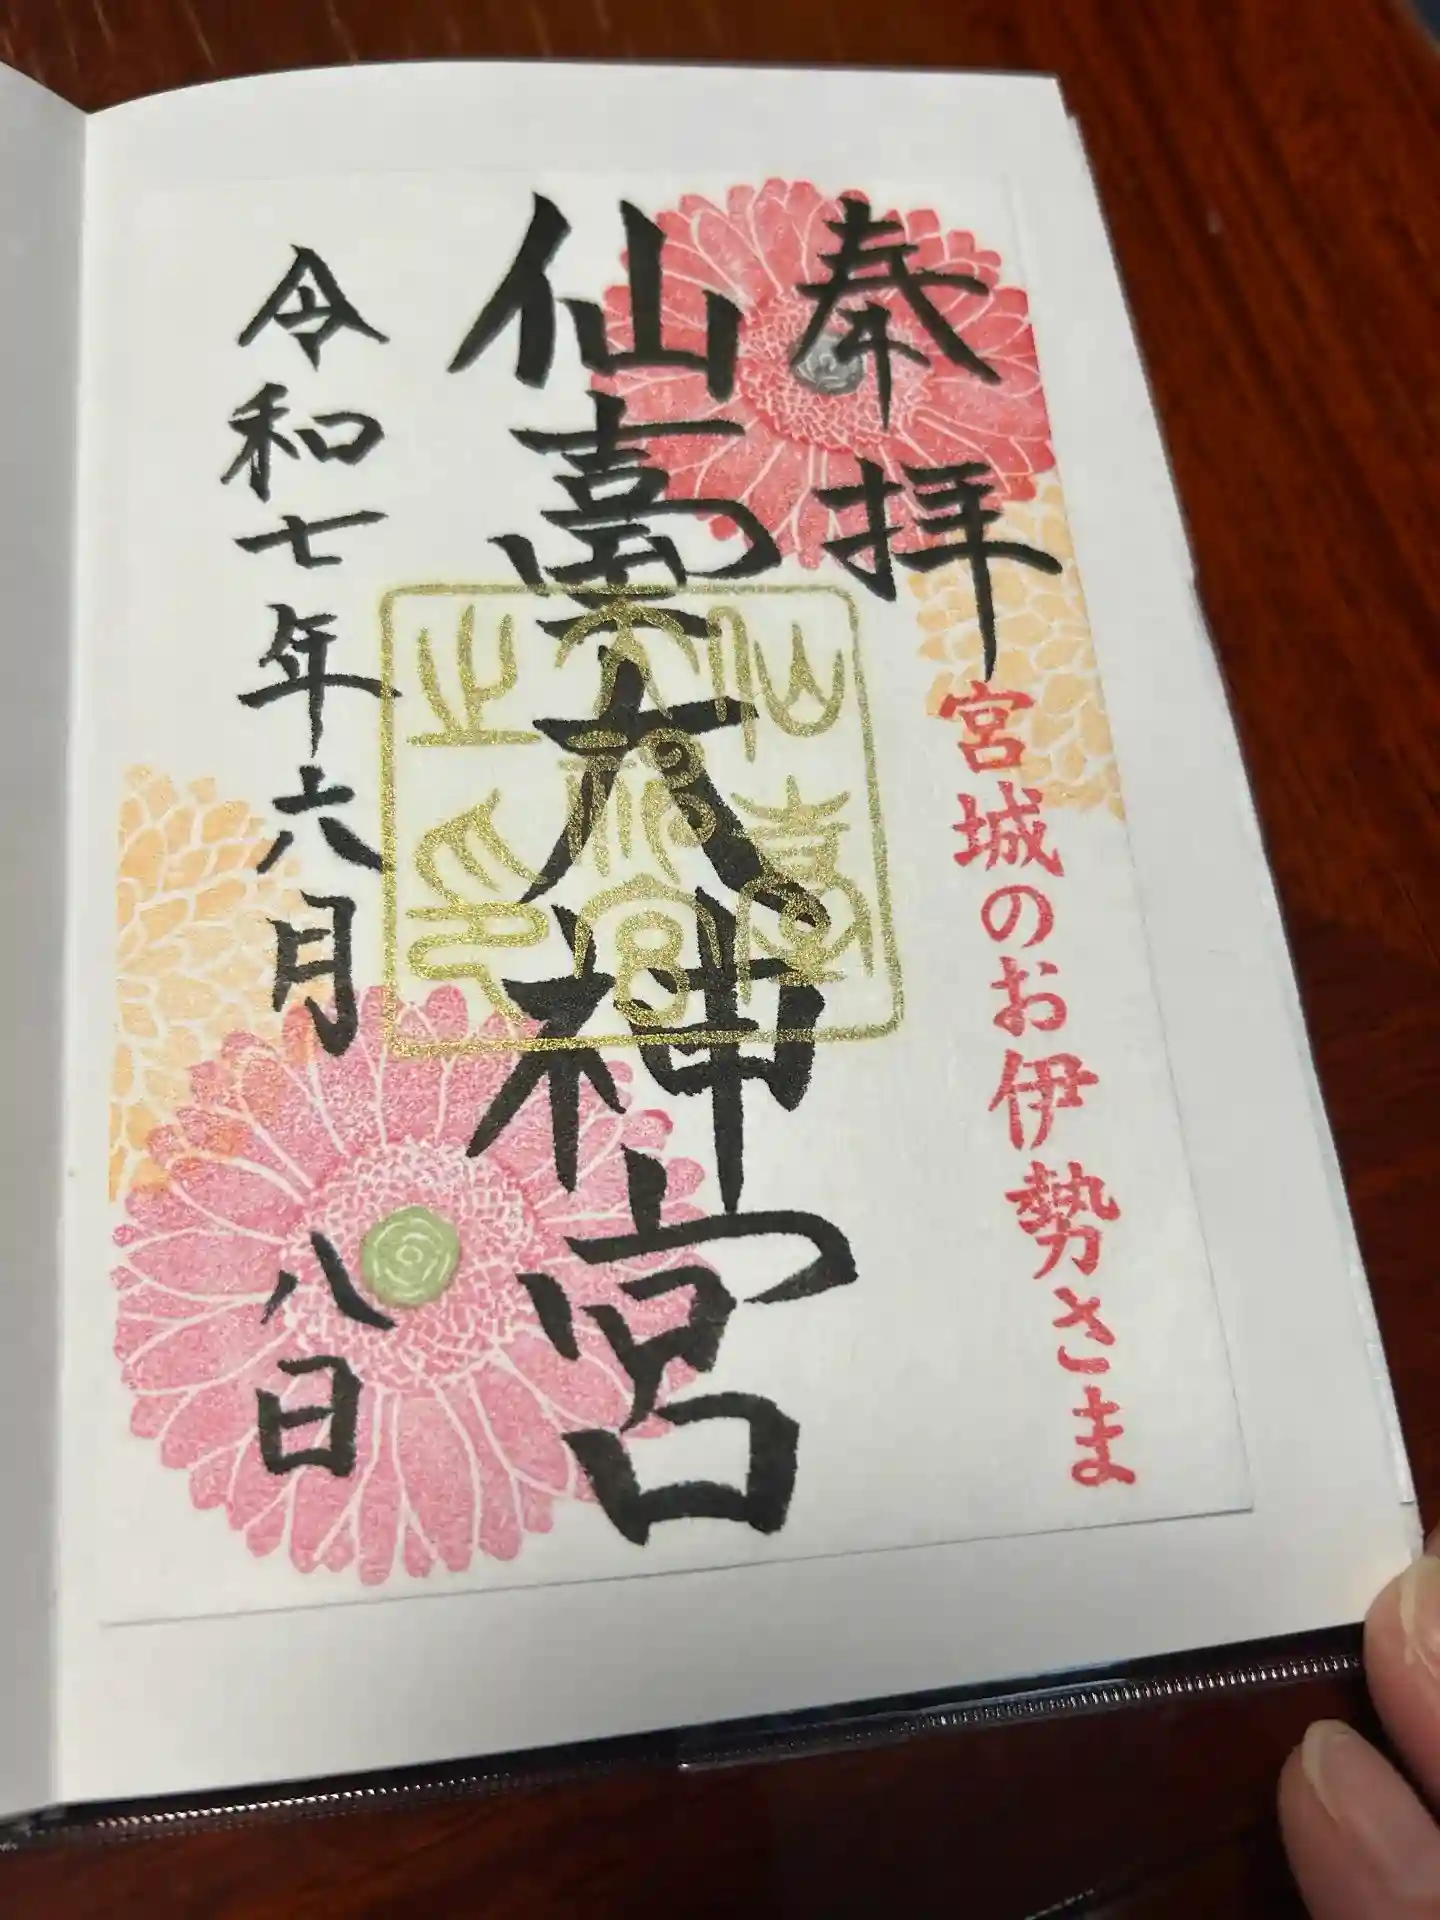 奉拝
宮城のお伊勢さま
仙臺大神宮
仙臺大神宮之印
令和七年六月八日